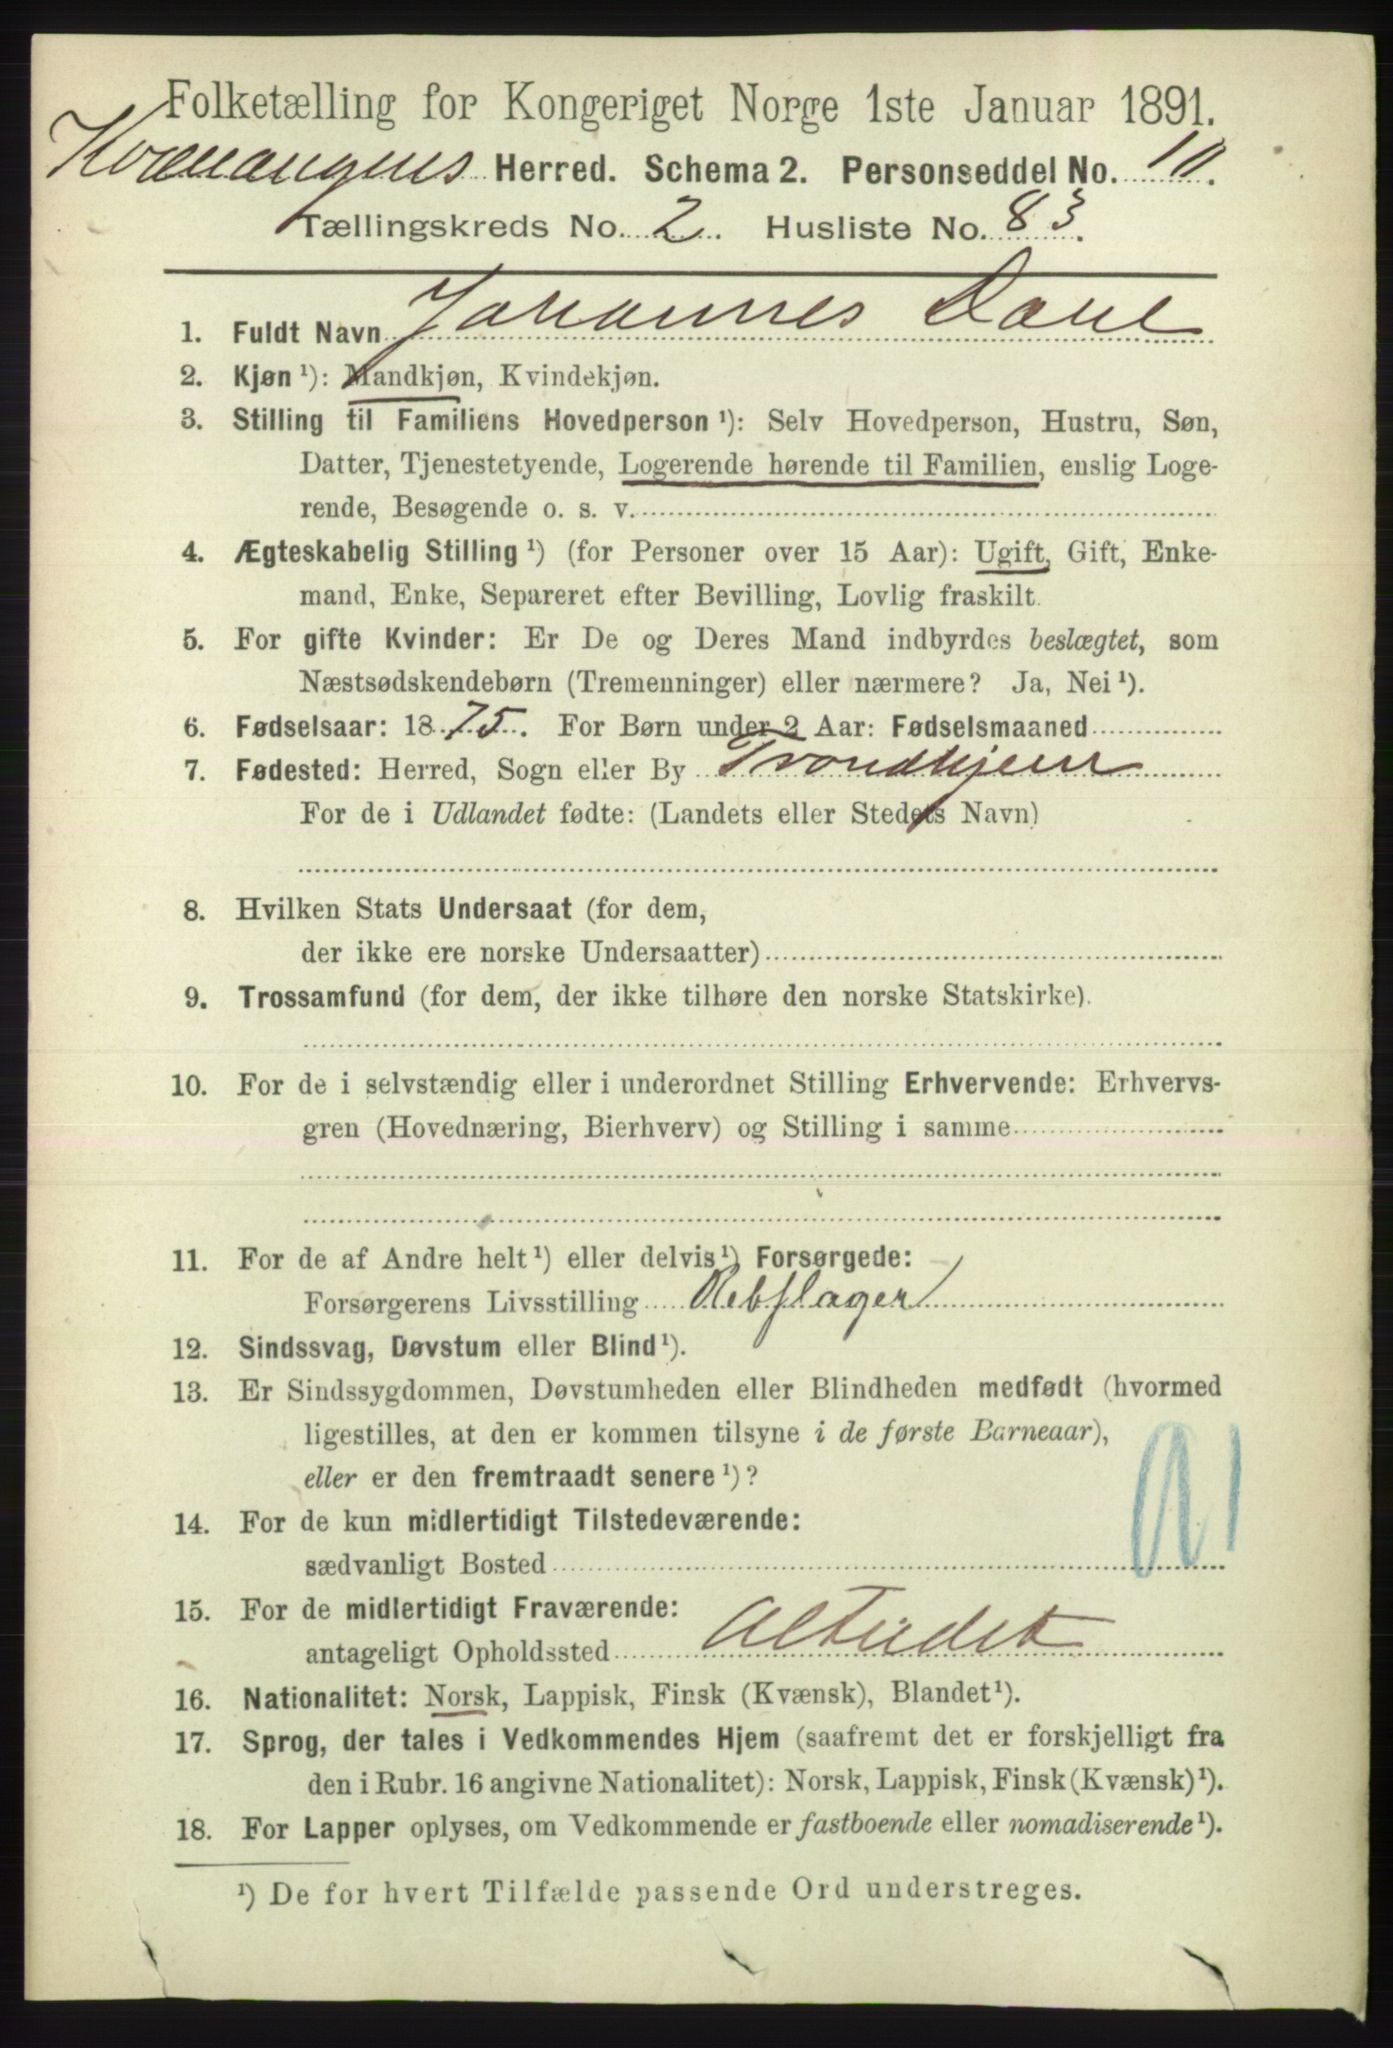 Folketælling for Kongeriget Norge 1ste Januar 1891.
Kvænangens Herred. Schema 2. Personseddel No. 10.
Tællingskreds No. 2. Husliste No. 83.
1. Fuldt Navn Johannes Dahl
2. Kjøn ¹): Mandkjøn, Kvindekjøn.
3. Stilling til Familiens Hovedperson ¹): Selv Hovedperson, Hustru, Søn,
Datter, Tjenestetyende, Logerende hørende til Familien, enslig Loge-
rende, Besøgende o. s. v.
4. Ægteskabelig Stilling ¹) (for Personer over 15 Aar): Ugift, Gift, Enke-
mand, Enke, Separeret efter Bevilling, Lovlig fraskilt.
5. For gifte Kvinder: Er De og Deres Mand indbyrdes beslægtet, som
Næstsødskendebørn (Tremenninger) eller nærmere? Ja, Nei ¹).
6. Fødselsaar: 1875. For Børn under 2 Aar: Fødselsmaaned
7. Fødested: Herred, Sogn eller By Trondhjem
For de i Udlandet fødte: (Landets eller Stedets Navn)
8. Hvilken Stats Undersaat (for dem,
der ikke ere norske Undersaatter)
9. Trossamfund (for dem, der ikke tilhøre den norske Statskirke).
10. For de i selvstændig eller i underordnet Stilling Erhvervende: Erhvervs-
gren (Hovednæring, Bierhverv) og Stilling i samme
11. For de af Andre helt ¹) eller delvis ¹) Forsørgede:
Forsørgerens Livsstilling Rebslager
12. Sindssvag, Døvstum eller Blind ¹).
13. Er Sindssygdommen, Døvstumheden eller Blindheden medfødt (hvormed
ligestilles, at den er kommen tilsyne i de første Barneaar),
eller er den fremtraadt senere ¹)?
14. For de kun midlertidigt Tilstedeværende:
sædvanligt Bosted
15. For de midlertidigt Fraværende:
antageligt Opholdssted
16. Nationalitet: Norsk, Lappisk, Finsk (Kvænsk), Blandet ¹).
17. Sprog, der tales i Vedkommendes Hjem (saafremt det er forskjelligt fra
den i Rubr. 16 angivne Nationalitet): Norsk, Lappisk, Finsk (Kvænsk) ¹).
18. For Lapper oplyses, om Vedkommende er fastboende eller nomadiserende ¹).
¹) De for hvert Tilfælde passende Ord understreges.